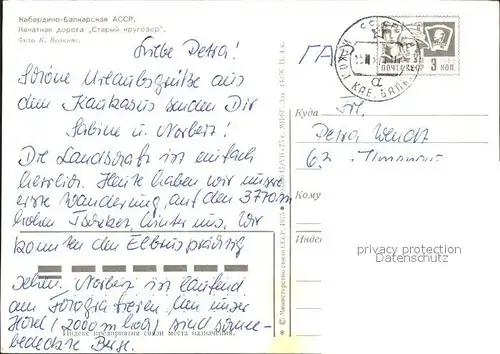 Кабардино-Балкарская АССР.
Канатная дорога „Старый кругозор“.
Фото К.
Liebe Petra!
Schöne Urlaubsgrüße aus
dem Kaukasus senden Dir
Sabine u. Norbert!
Die Landschaft ist einfach
herrlich. Heute haben wir unsere
erste Wanderung, auf den 3770 m
hohen hinter uns. Wir
konnten den Elbrus prächtig
sehen. Norbert ist laufend
am Fotografieren. Um unser
Hotel (2000 m hoch) sind schnee-
bedeckte Berge.
Индекс предприятия связи места назначения.
© Министерство связи СССР. 1975
ПОЧТА СССР
3 КОП.
Куда
Frl.
Petra Wendt
63 Ilmenau
Кому
Индекс
privacy protection
Datenschutz